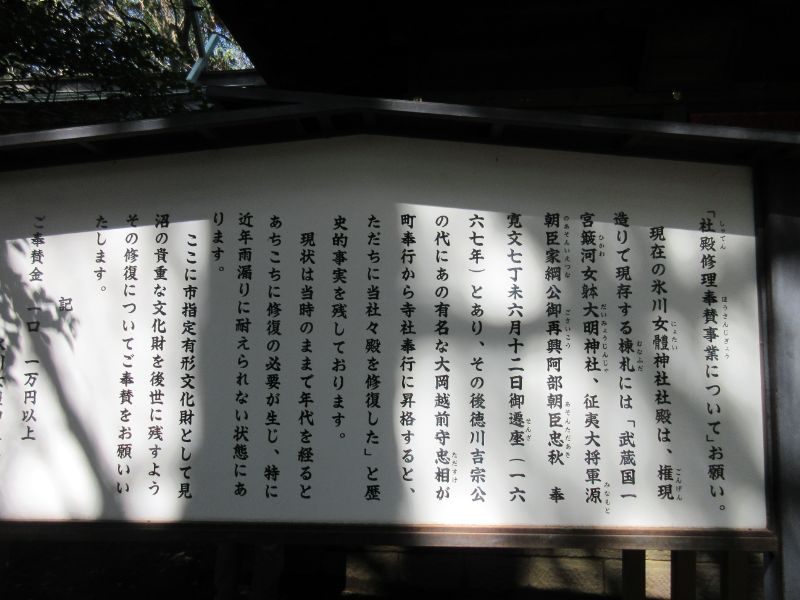 「社殿修理奉賛事業について」お願い。
現在の氷川女體神社社殿は、権現
造りで現存する棟札には「武蔵国一
宮簸河女躰大明神社、征夷大将軍源
朝臣家綱公御再興阿部朝臣忠秋　奉
寛文七丁未六月十二日御遷座（一六
六七年）とあり、その後徳川吉宗公
の代にあの有名な大岡越前守忠相が
町奉行から寺社奉行に昇格すると、
ただちに当社々殿を修復した」と歴
史的事実を残しております。
現状は当時のままで年代を経ると
あちこちに修復の必要が生じ、特に
近年雨漏りに耐えられない状態にあ
ります。
ここに市指定有形文化財として見
沼の貴重な文化財を後世に残すよう
その修復についてご奉賛をお願いい
たします。
記
ご奉賛金　一口　一万円以上